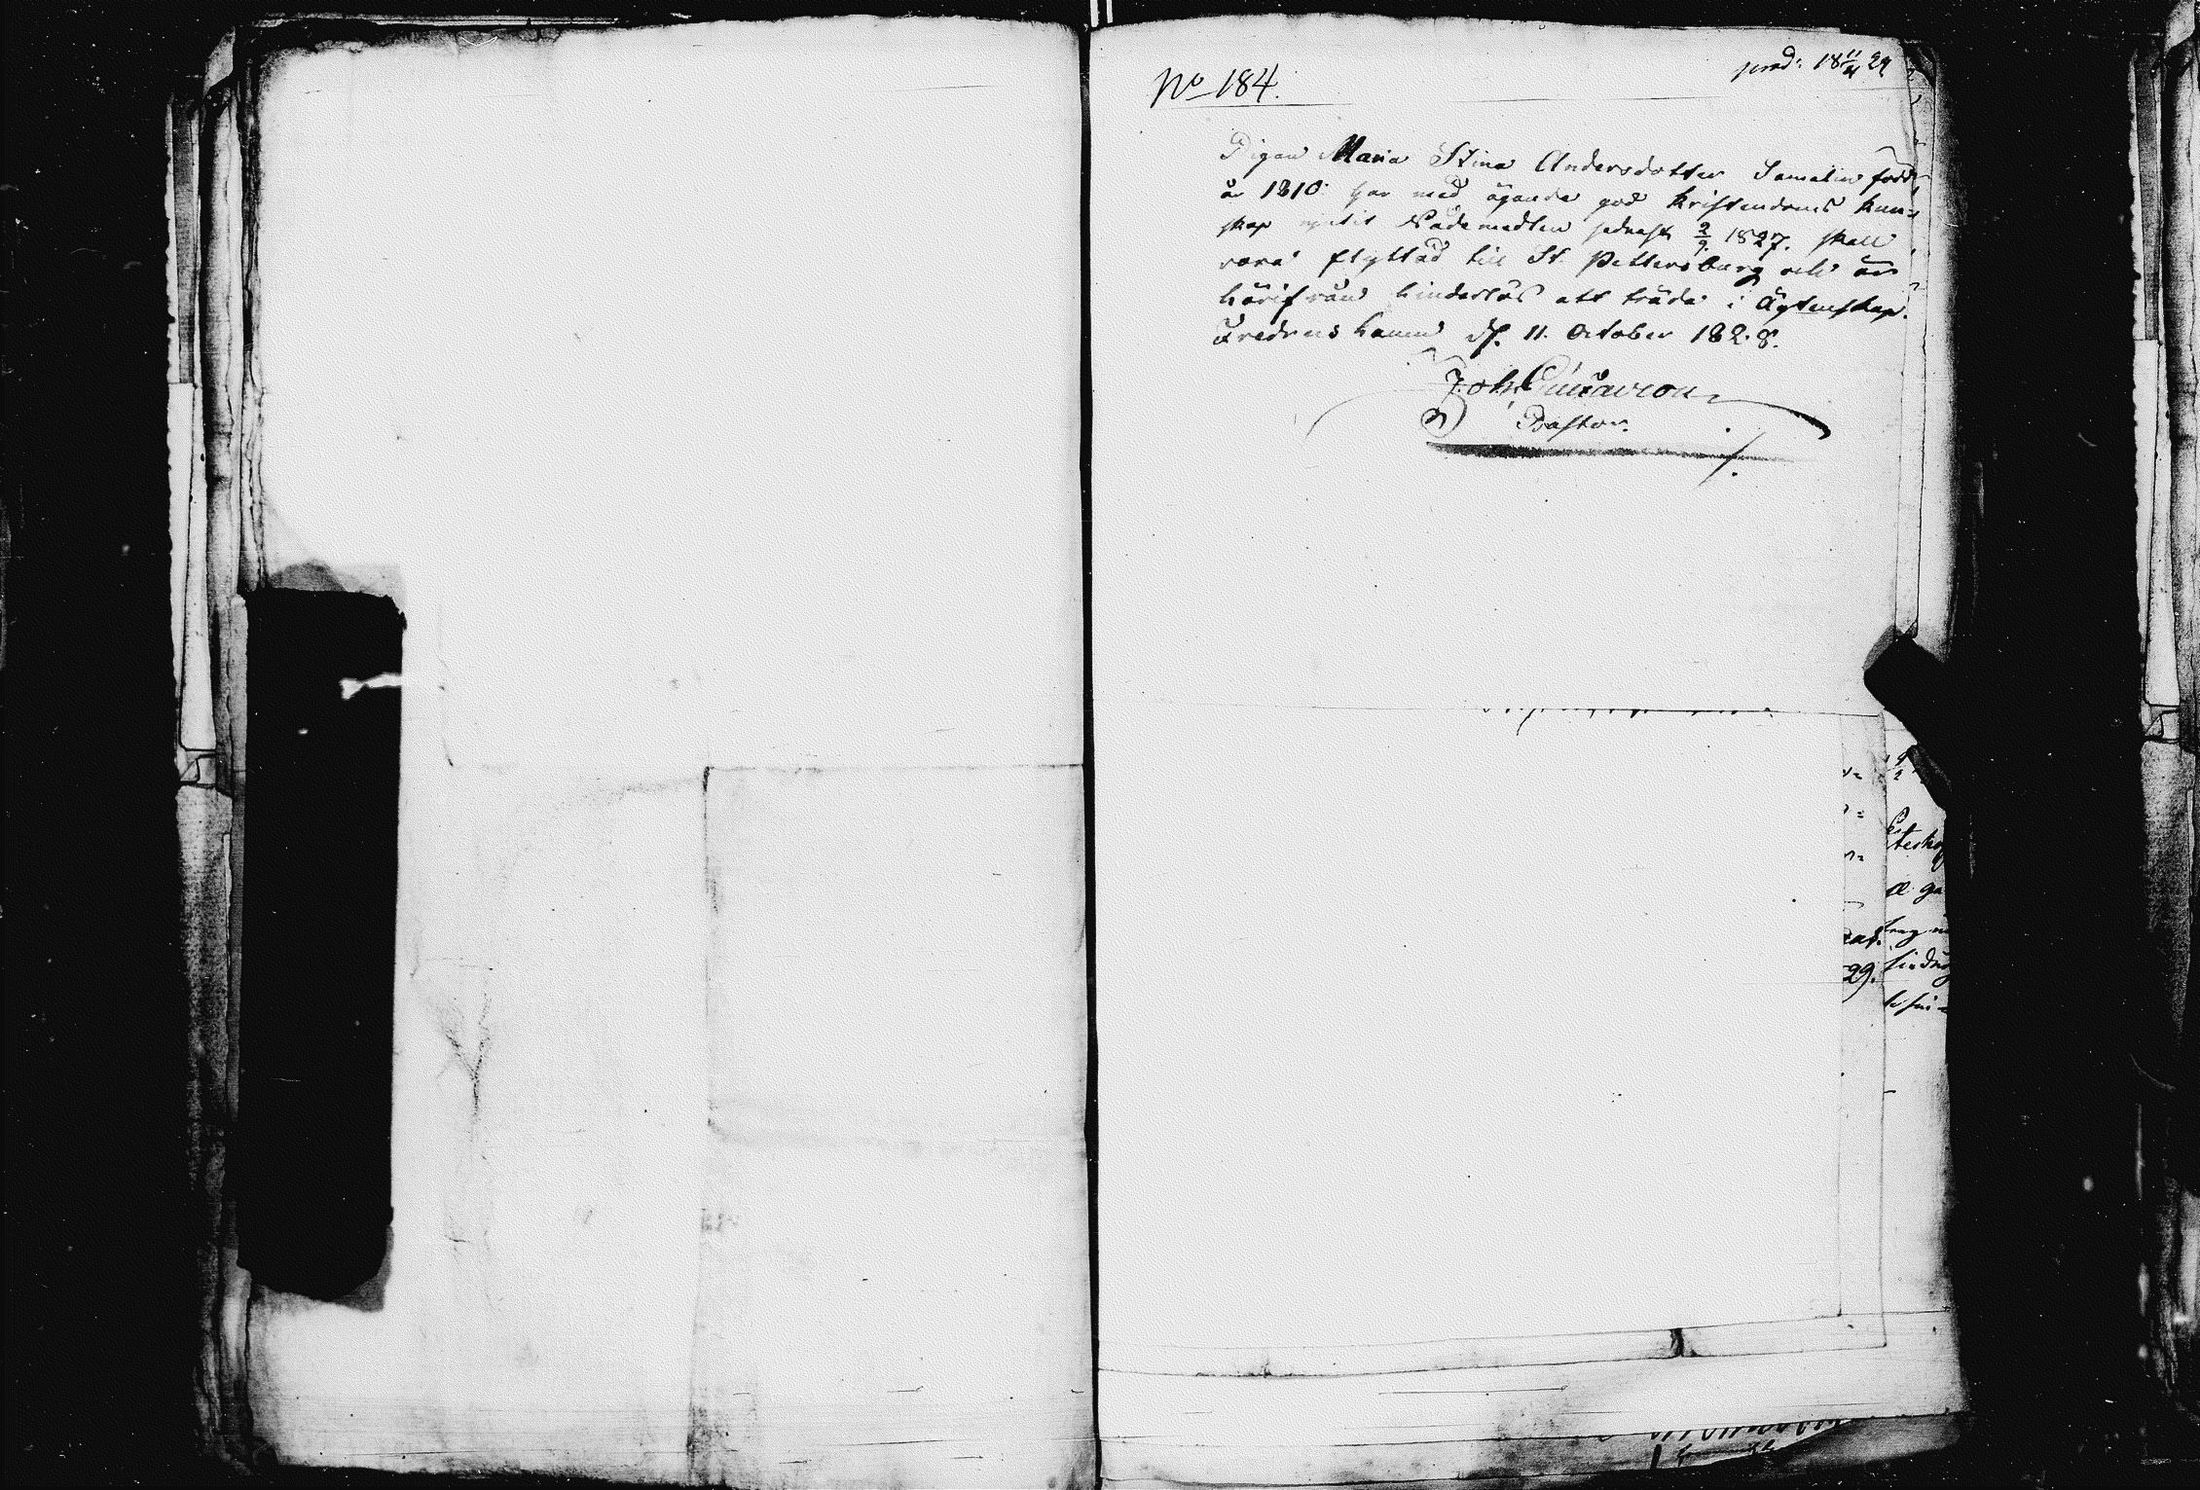 No 184.
prod: 18 11/4 29
Pigan Maria Stina Andersdotter Samelin född
år 1810 har med ägande god Kristendoms kun-
skap njutit Nådemedlen sednast 2/9. 1827. skall
vara flyttad till St. Pettersburg och är
härifrån hinderlös att träda i Ägtenskap.
Fredrikshamn d. 11. October 1828.
Joh.
Pastor.
29.